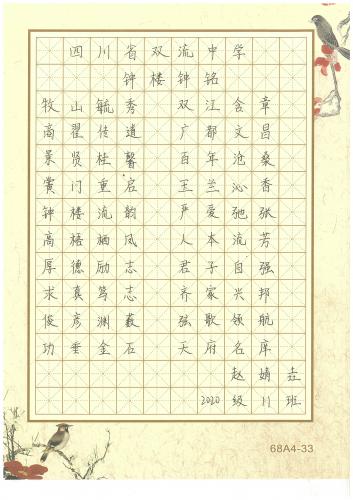 四川省双流中学
钟楼钟铭
牧山毓秀 双江含章
高翟传道 广都文昌
景贤桂馨 百年沧桑
黉门重启 玉兰沁香
钟楼流韵 严爱弛张
高梧栖凤 人本流芳
厚德励志 君子自强
求真笃志 齐家兴邦
俊彦渊薮 弦歌领航
功垂金石 天府名庠
赵婧垚
2020级11班
68A4-33